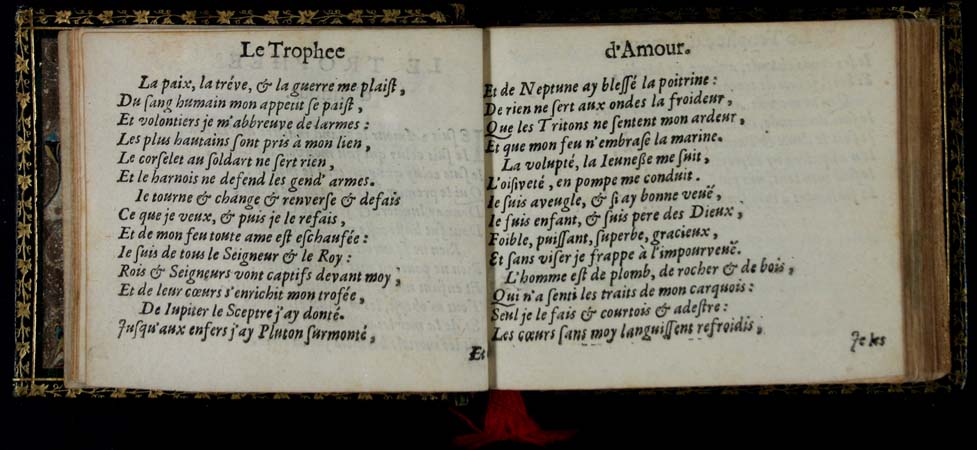 Le Trophee
La paix, la tréve, & la guerre me plaiſt,
Du ſang humain mon appetit ſe paiſt,
Et volontiers je m'abbreuve de larmes:
Les plus hautains ſont pris à mon lien,
Le corſelet au ſoldart ne ſert rien,
Et le harnois ne defend les gend'armes.
Ie tourne & change & renverſe & defais
Ce que je veux, & puis je le refais,
Et de mon feu toute ame eſt eſchaufée:
Ie ſuis de tous le Seigneur & le Roy:
Rois & Seigneurs vont captifs devant moy,
Et de leur cœurs s'enrichit mon trofée,
De Iupiter le Sceptre j'ay donté.
Juſqu'aux enfers j'ay Pluton ſurmonté,
Et
d'Amour.
Et de Neptune ay bleſſé la poitrine:
De rien ne ſert aux ondes la froideur,
Que les Tritons ne ſentent mon ardeur,
Et que mon feu n'embraſe la marine.
La volupté, la Ieuneße me ſuit,
L'oiſiveté, en pompe me conduit.
Ie ſuis aveugle, & ſi ay bonne veuë,
Ie ſuis enfant, & ſuis pere des Dieux,
Foible, puiſſant, ſuperbe, gracieux,
Et ſans viſer je frappe à l'impourveuë.
L'homme eſt de plomb, de rocher & de bois,
Qui n'a ſenti les traits de mon carquois:
Seul je le fais & courtois & adeſtre:
Les cœurs ſans moy languiſſent refroidis,
Je les